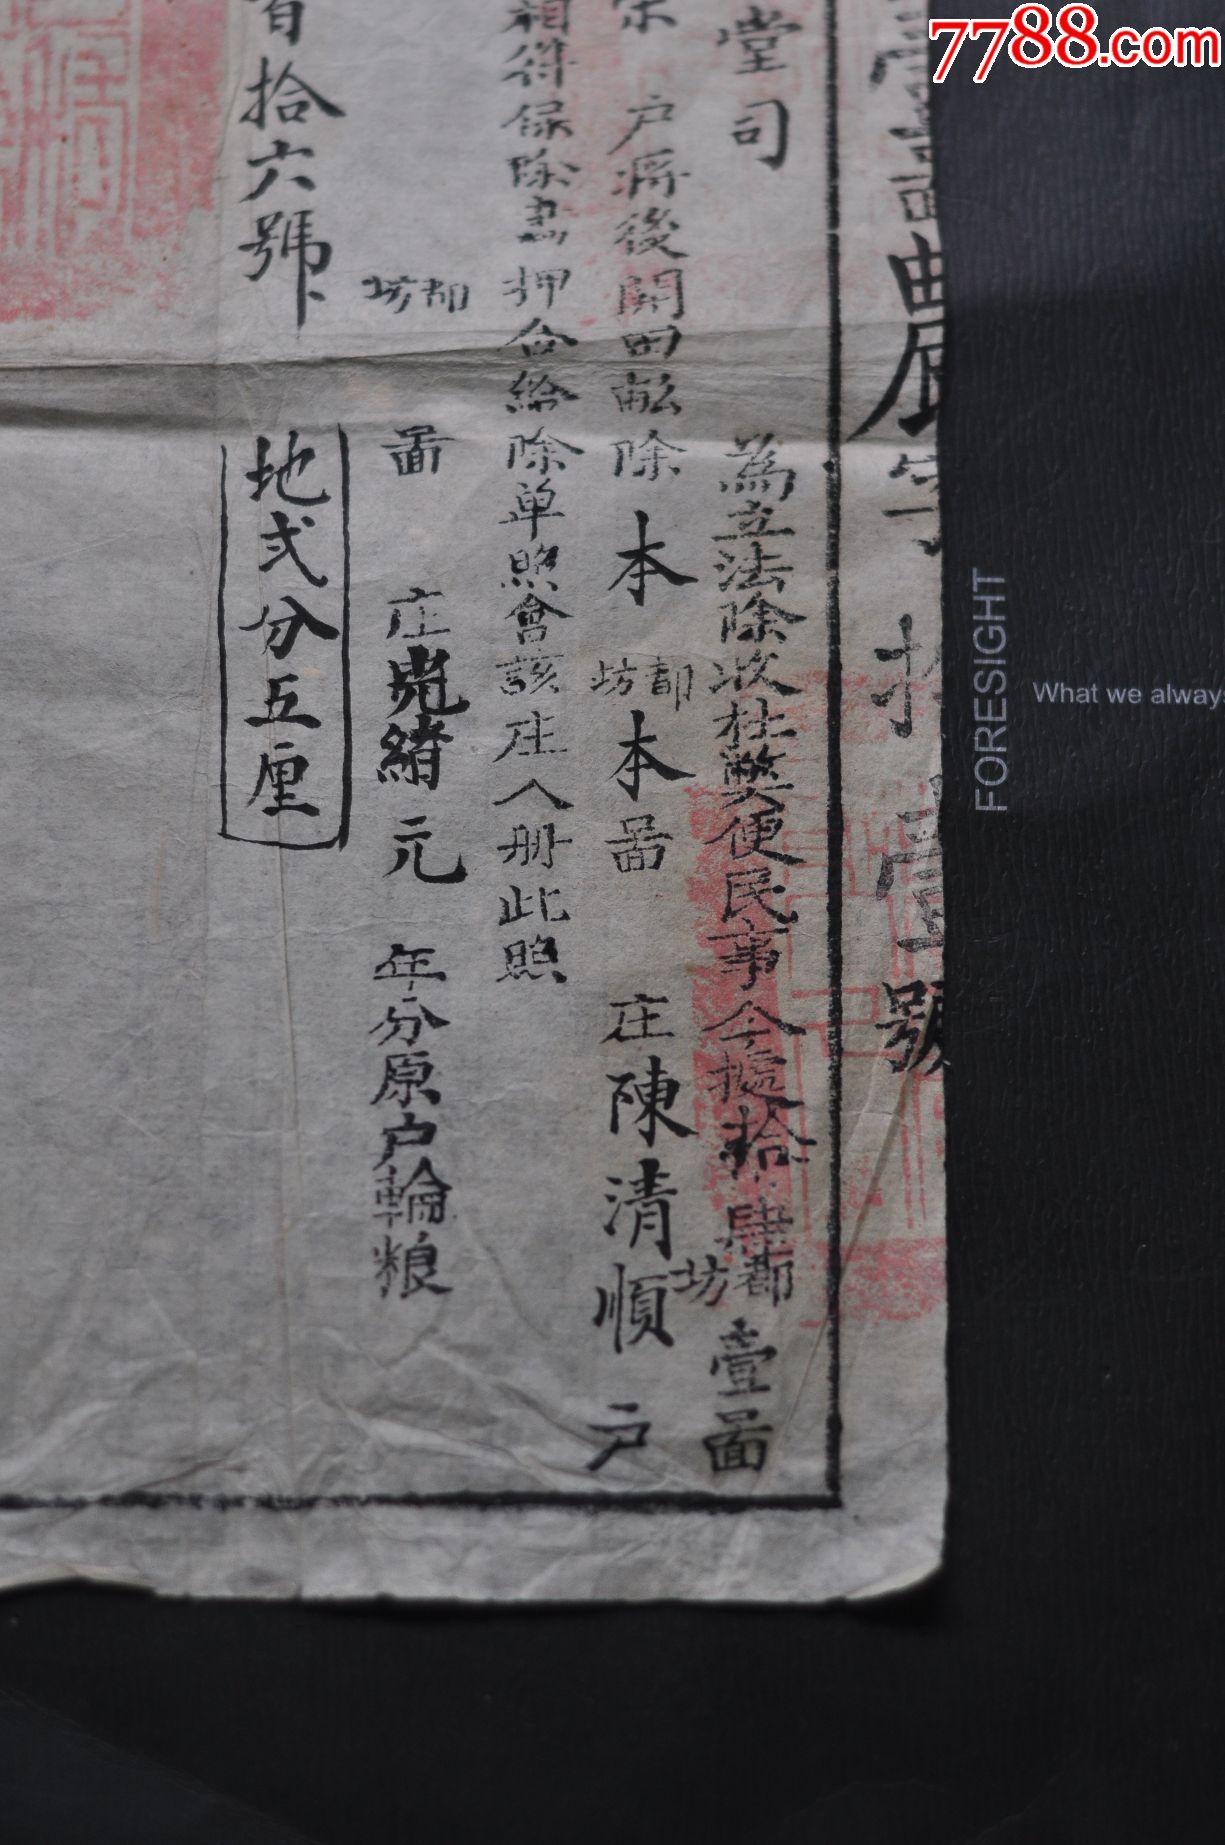 7788.com
FORESIGHT
What we alway
農字拾壹號
堂司
為立法除收杜弊便民事今據拾肆都坊壹啚
戶將後開田畝除本都坊本啚庄陳清順戶
相符保除書押合給除单照會該庄入册此照
都坊啚庄光緒元年分原户輪粮
百拾六號
地弍分五厘